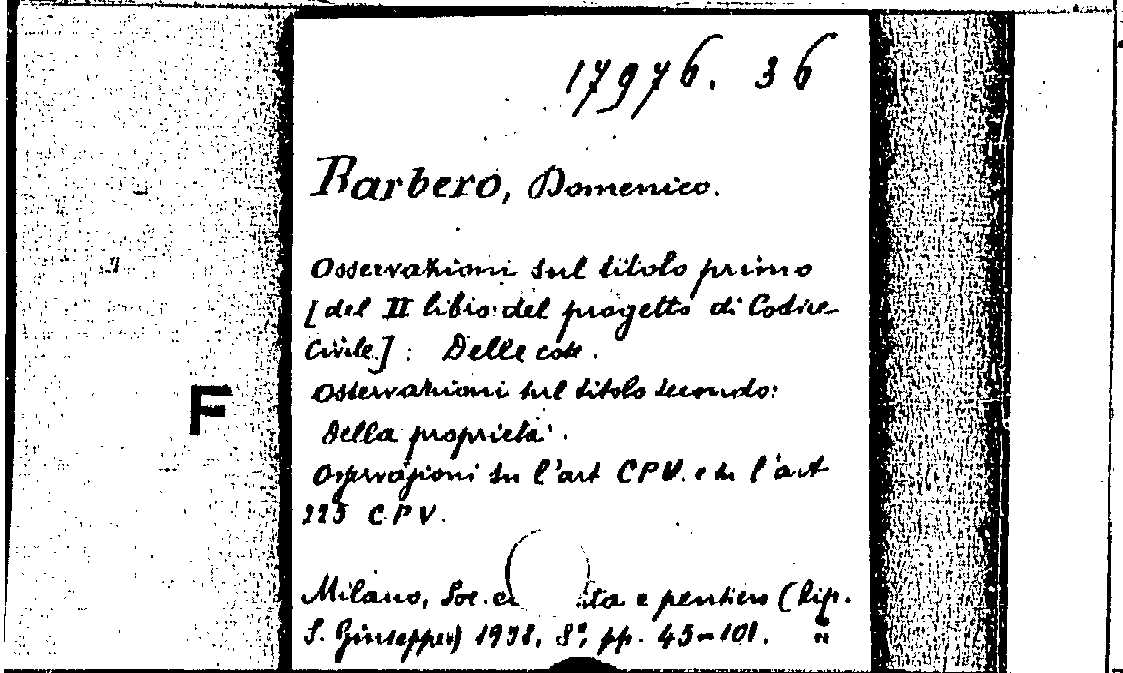 17976. 36
Barbero, Domenico.
Osservazioni sul titolo primo
[del II libro del progetto di Codice
Civile]: Delle cose.
F
Osservazioni sul titolo secondo:
Della proprietà.
Osservazioni su l'art CPV. e su l'art
225 C.P.V.
Milano, Soc. ed ita e pensiero (Tip.
S. Giuseppe) 1938, 8º, pp. 45-101.